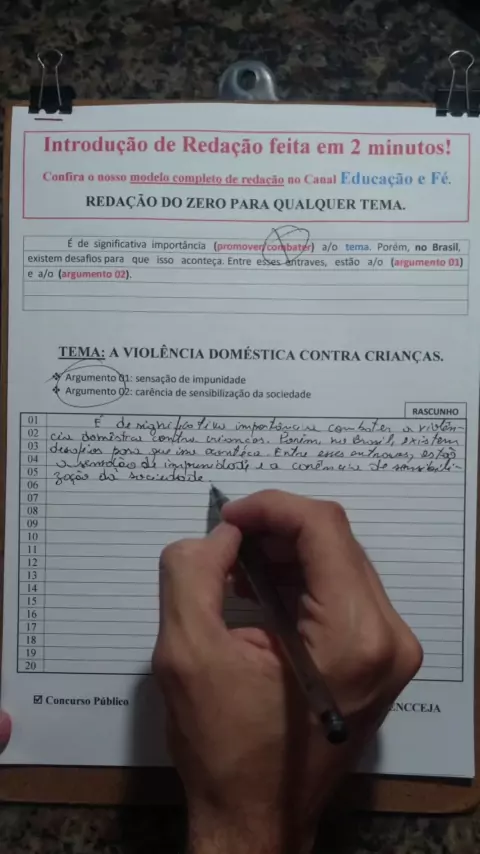 Introdução de Redação feita em 2 minutos!
Confira o nosso modelo completo de redação no Canal Educação e Fé.
REDAÇÃO DO ZERO PARA QUALQUER TEMA.
É de significativa importância (promover/combater) a/o tema. Porém, no Brasil,
existem desafios para que isso aconteça. Entre esses entraves, estão a/o (argumento 01)
e a/o (argumento 02).
TEMA: A VIOLÊNCIA DOMÉSTICA CONTRA CRIANÇAS.
Argumento 01: sensação de impunidade
Argumento 02: carência de sensibilização da sociedade
RASCUNHO
01 É de significativa importância combater a violên-
02 cia doméstica contra crianças. Porém, no Brasil, existem
03 desafios para que isso aconteça. Entre esses entraves, estão
04 a sensação de impunidade e a carência de sensibili-
05 zação da sociedade.
06
07
08
09
10
11
12
13
14
15
16
17
18
19
20
Concurso Público
ENCCEJA